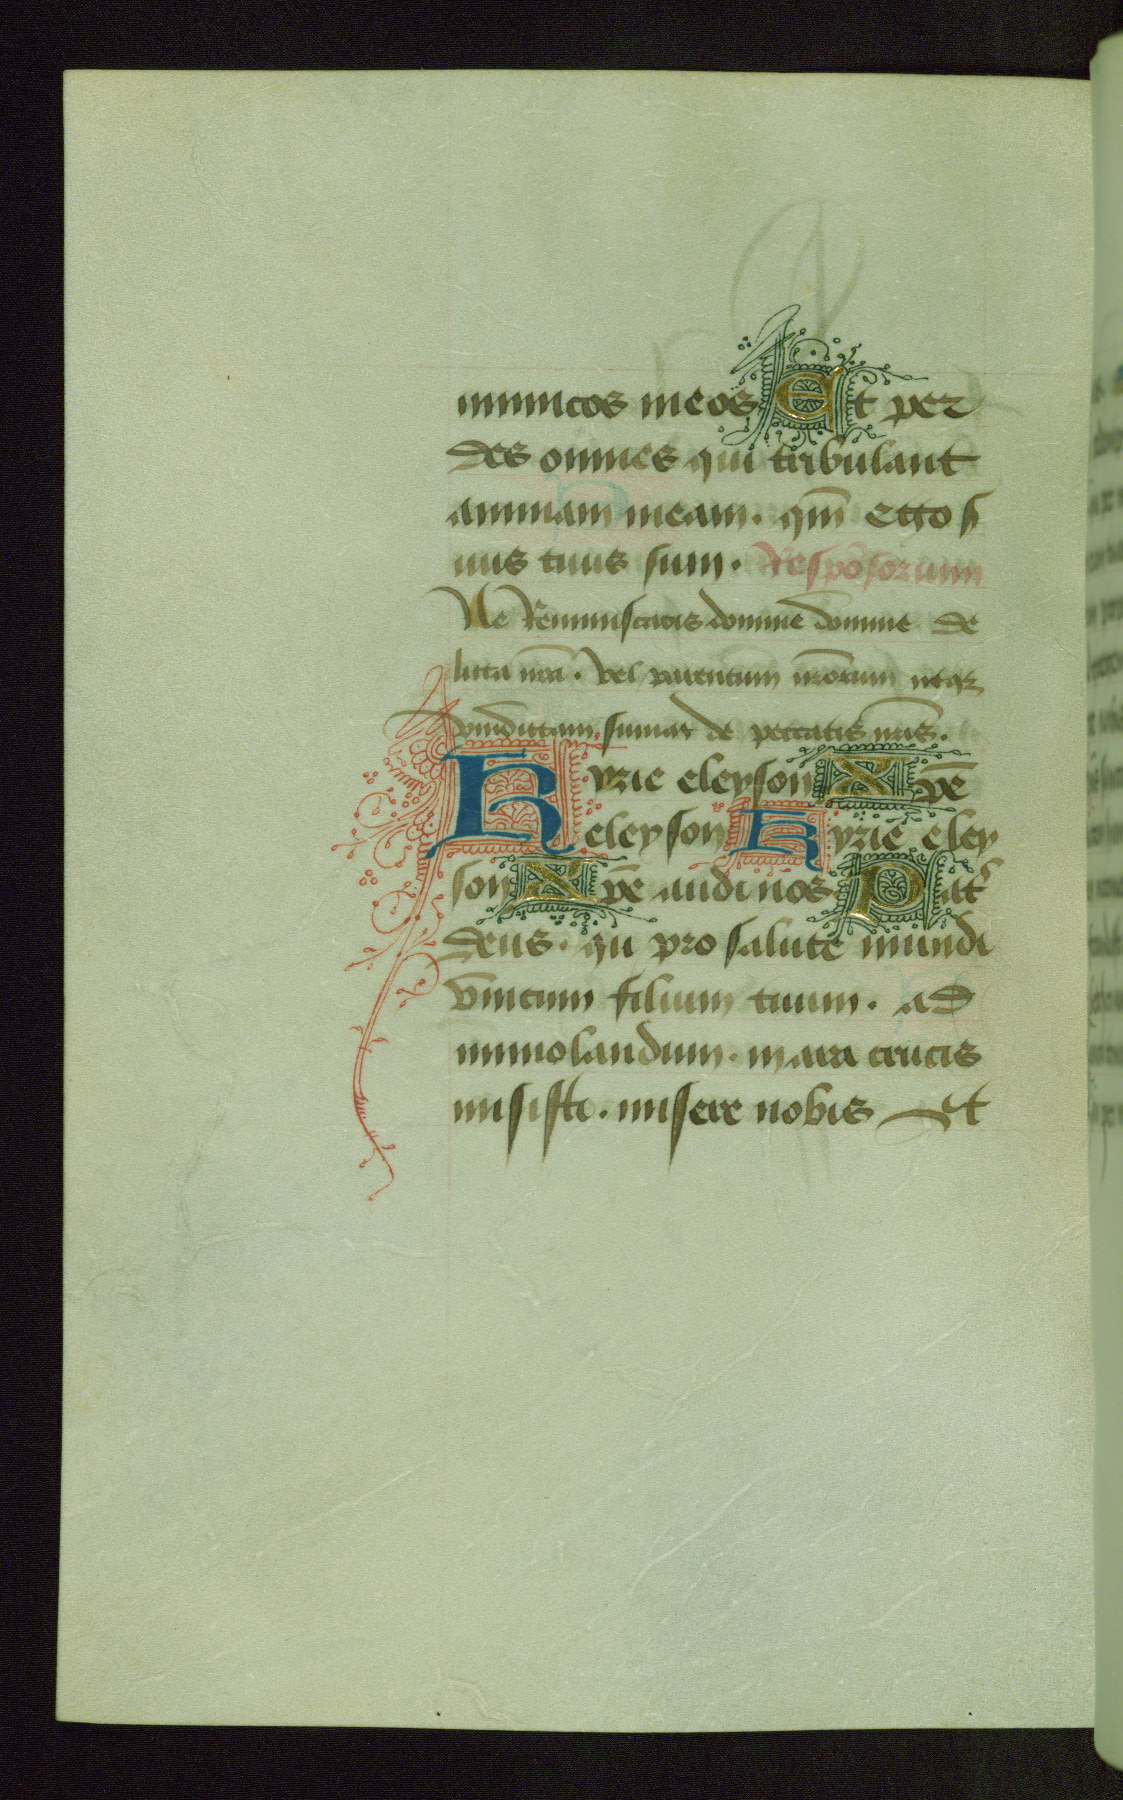 inimicos meos Et per
des omnes qui tribulant
animam meam. qm̄ ego s
uus tuus sum. Respōsorium
Ne Reminiscaris domine domine de
licta nrā. Vel parentum nrorum neqz
vindictam sumas de peccatis nrīs.
Kyrie eleyson Xpē
eleyson Kyrie eley
son Xpē audi nos Pat̄
deus. qui pro salute mundi
vnicum filium tuum. ad
immolandum. in ara crucis
misisti. misere nobis Et